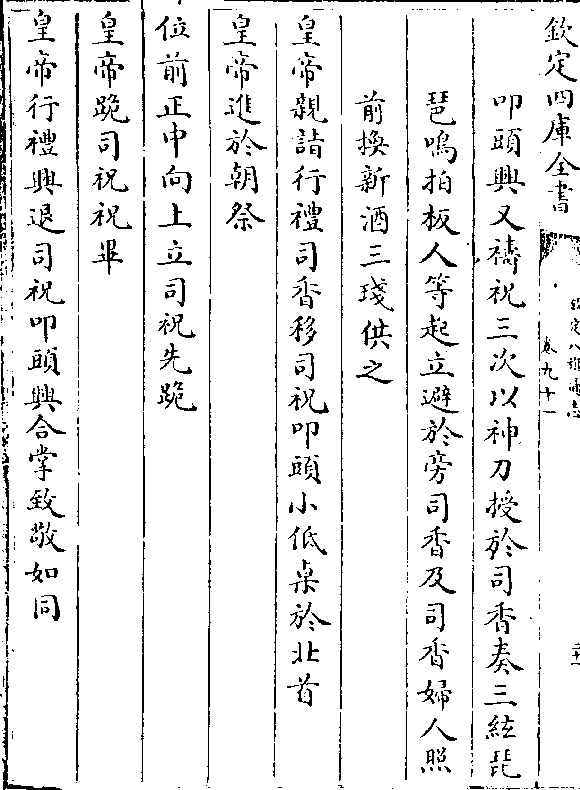 欽定四庫全書
卷九十一
叩頭興又禱祝三次以神刀授於司香奏三絃琵
琶鳴拍板人等起立避於旁司香及司香婦人照
前換新酒三琖供之
皇帝親詣行禮司香移司祝叩頭小低桌於北首
皇帝進於朝祭
位前正中向上立司祝先跪
皇帝跪司祝祝畢
皇帝行禮興退司祝叩頭興合掌致敬如同